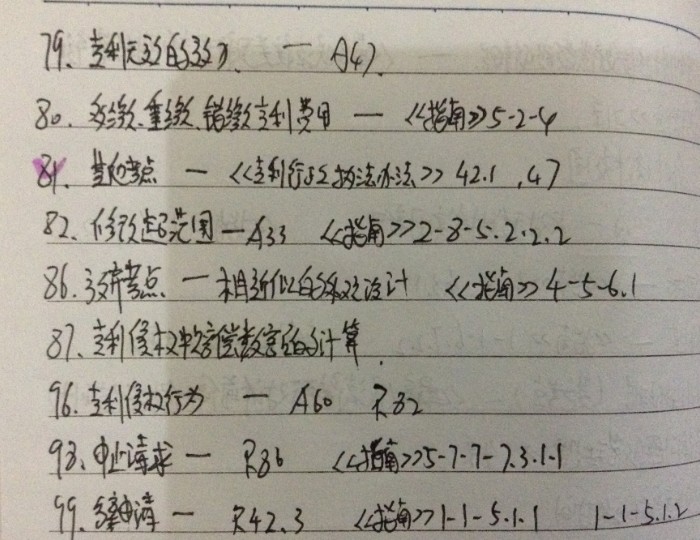 79、专利无效的效力 — A47.
80. 多缴、重缴、错缴专利费用 — 《指南》5-2-4
81. 其他考点 — 《专利行政执法办法》42.1 , 47
82. 修改超范围 — A33 《指南》2-8-5.2.2.2
86. 考点 — 相近似的外观设计 《指南》4-5-6.1
87. 专利侵权中赔偿数额的计算.
96. 专利侵权行为 — A60 R82
98、中止请求 — R86 《指南》5-7-7-7.3.1.1
99. 分案申请 — R42.3 《指南》1-1-5.1.1 1-1-5.1.2